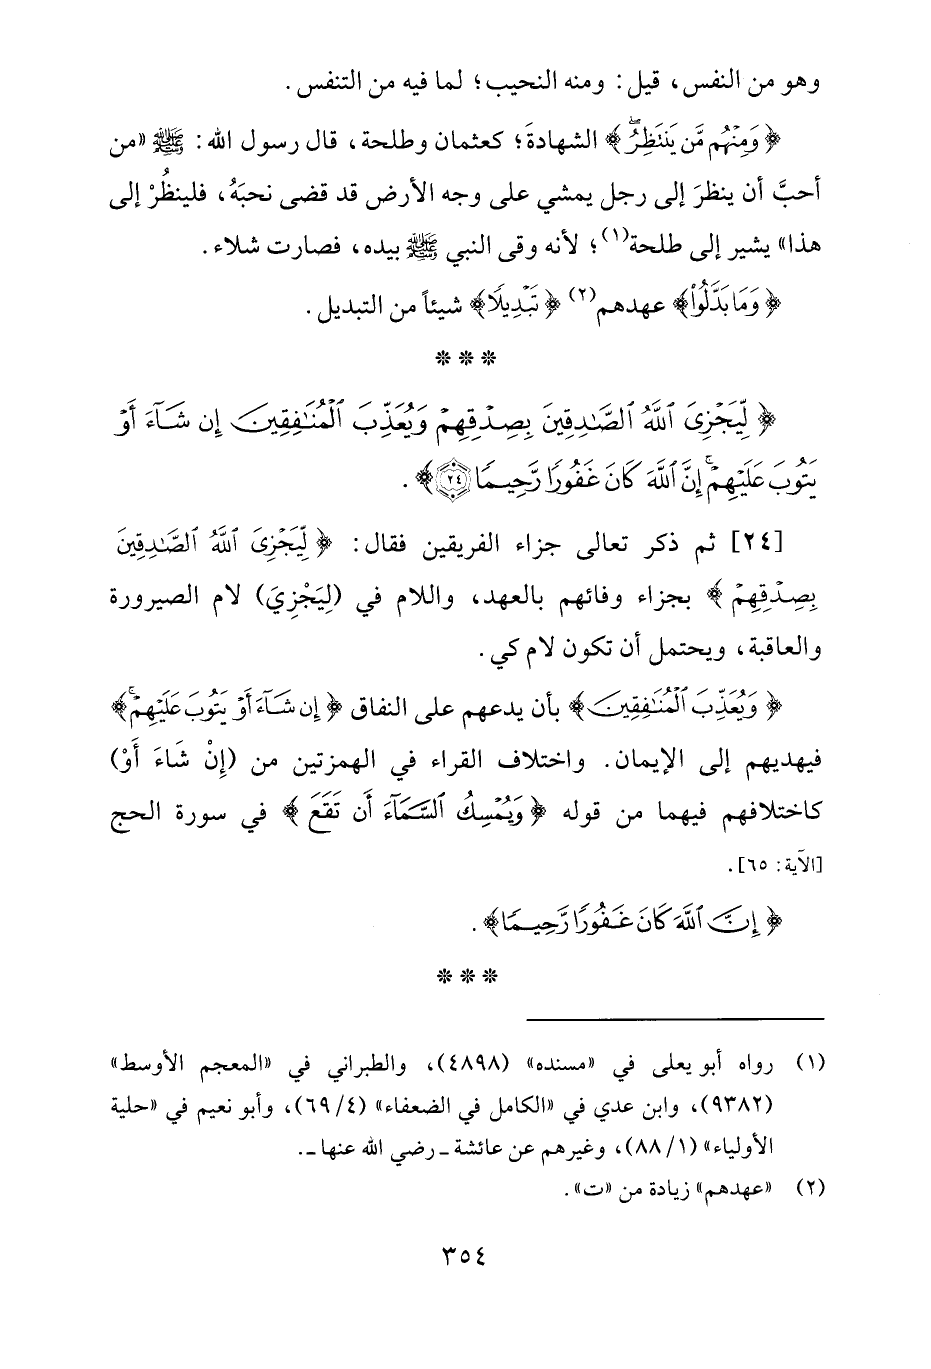 وهو من النفس، قيل: ومنه النحيب؛ لما فيه من التنفس.
﴿وَمِنْهُم مَّن يَنتَظِرُ﴾ الشهادةَ؛ كعثمان وطلحة، قال رسول الله: ﷺ «من
أحبَّ أن ينظرَ إلى رجل يمشي على وجه الأرض قد قضى نحبَهُ، فلينظُرْ إلى
هذا» يشير إلى طلحة(١)؛ لأنه وقى النبي ﷺ بيده، فصارت شلاء.
﴿وَمَا بَدَّلُواْ﴾ عهدهم(٢) ﴿تَبْدِيلًا﴾ شيئاً من التبديل.
* * *
﴿لِّيَجْزِىَ ٱللَّهُ ٱلصَّٰدِقِينَ بِصِدْقِهِمْ وَيُعَذِّبَ ٱلْمُنَٰفِقِينَ إِن شَآءَ أَوْ
يَتُوبَ عَلَيْهِمْ ۚ إِنَّ ٱللَّهَ كَانَ غَفُورًا رَّحِيمًا ٢٤﴾.
[٢٤] ثم ذكر تعالى جزاء الفريقين فقال: ﴿لِّيَجْزِىَ ٱللَّهُ ٱلصَّٰدِقِينَ
بِصِدْقِهِمْ﴾ بجزاء وفائهم بالعهد، واللام في (لِيَجْزِيَ) لام الصيرورة
والعاقبة، ويحتمل أن تكون لام كي.
﴿وَيُعَذِّبَ ٱلْمُنَٰفِقِينَ﴾ بأن يدعهم على النفاق ﴿إِن شَآءَ أَوْ يَتُوبَ عَلَيْهِمْ ۚ﴾
فيهديهم إلى الإيمان. واختلاف القراء في الهمزتين من (إِنْ شَاءَ أَوْ)
كاختلافهم فيهما من قوله ﴿وَيُمْسِكُ ٱلسَّمَآءَ أَن تَقَعَ﴾ في سورة الحج
[الآية: ٦٥].
﴿إِنَّ ٱللَّهَ كَانَ غَفُورًا رَّحِيمًا﴾.
* * *
(١) رواه أبو يعلى في «مسنده» (٤٨٩٨)، والطبراني في «المعجم الأوسط»
(٩٣٨٢)، وابن عدي في «الكامل في الضعفاء» (٤/ ٦٩)، وأبو نعيم في «حلية
الأولياء» (١/ ٨٨)، وغيرهم عن عائشة ـ رضي الله عنها ـ.
(٢) «عهدهم» زيادة من «ت».
٣٥٤